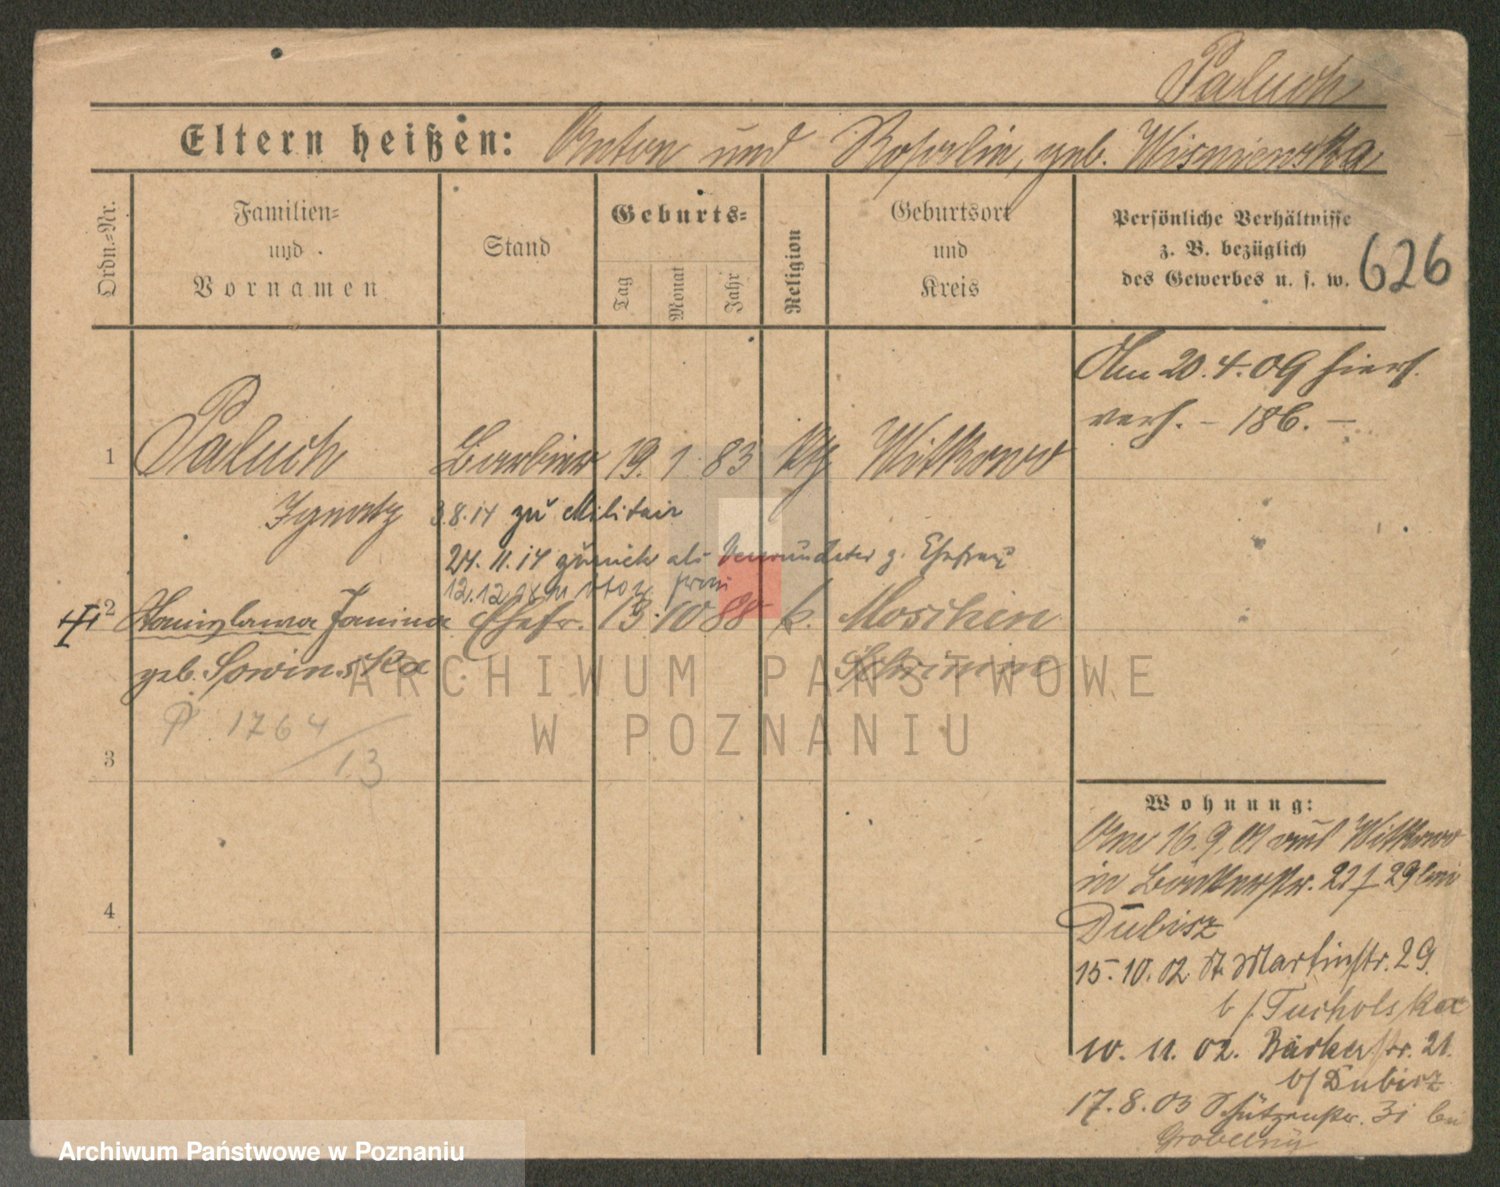 Paluch
Eltern heißen: Anton und Rosalie, geb. Wisniewska
Ordn.=Nr.
Familien=
und
Vornamen
Stand
Geburts=
Tag
Monat
Jahr
Religion
Geburtsort
und
Kreis
Persönliche Verhältnisse
z. B. bezüglich
des Gewerbes u. s. w.
626
Am 20.4.09 hiers.
verh. - 186. -
1 Paluch Barbier 19. 1. 83 kth Witkowo
Ignatz 3.8.14 zu Militair
24.11.14 zurück als Verwundeter z. Ehefrau
12.12.
2 Stanislawa Janina Ehefr. 13. 10 88 k. Moschin
geb. Sowinska Schrimm
P 1764/13
3
4
Wohnung:
Am 16.9.01 aus Witkowo
in Bäckerstr. 29 bei
Dubisz
15.10.02 St Martinstr. 29.
b/ Tucholska
10.11.02. Bäckerstr. 21.
b/ Dubisz
17.8.03 Schützenstr. 31 bei
ARCHIWUM PAŃSTWOWE
W POZNANIU
Archiwum Państwowe w Poznaniu